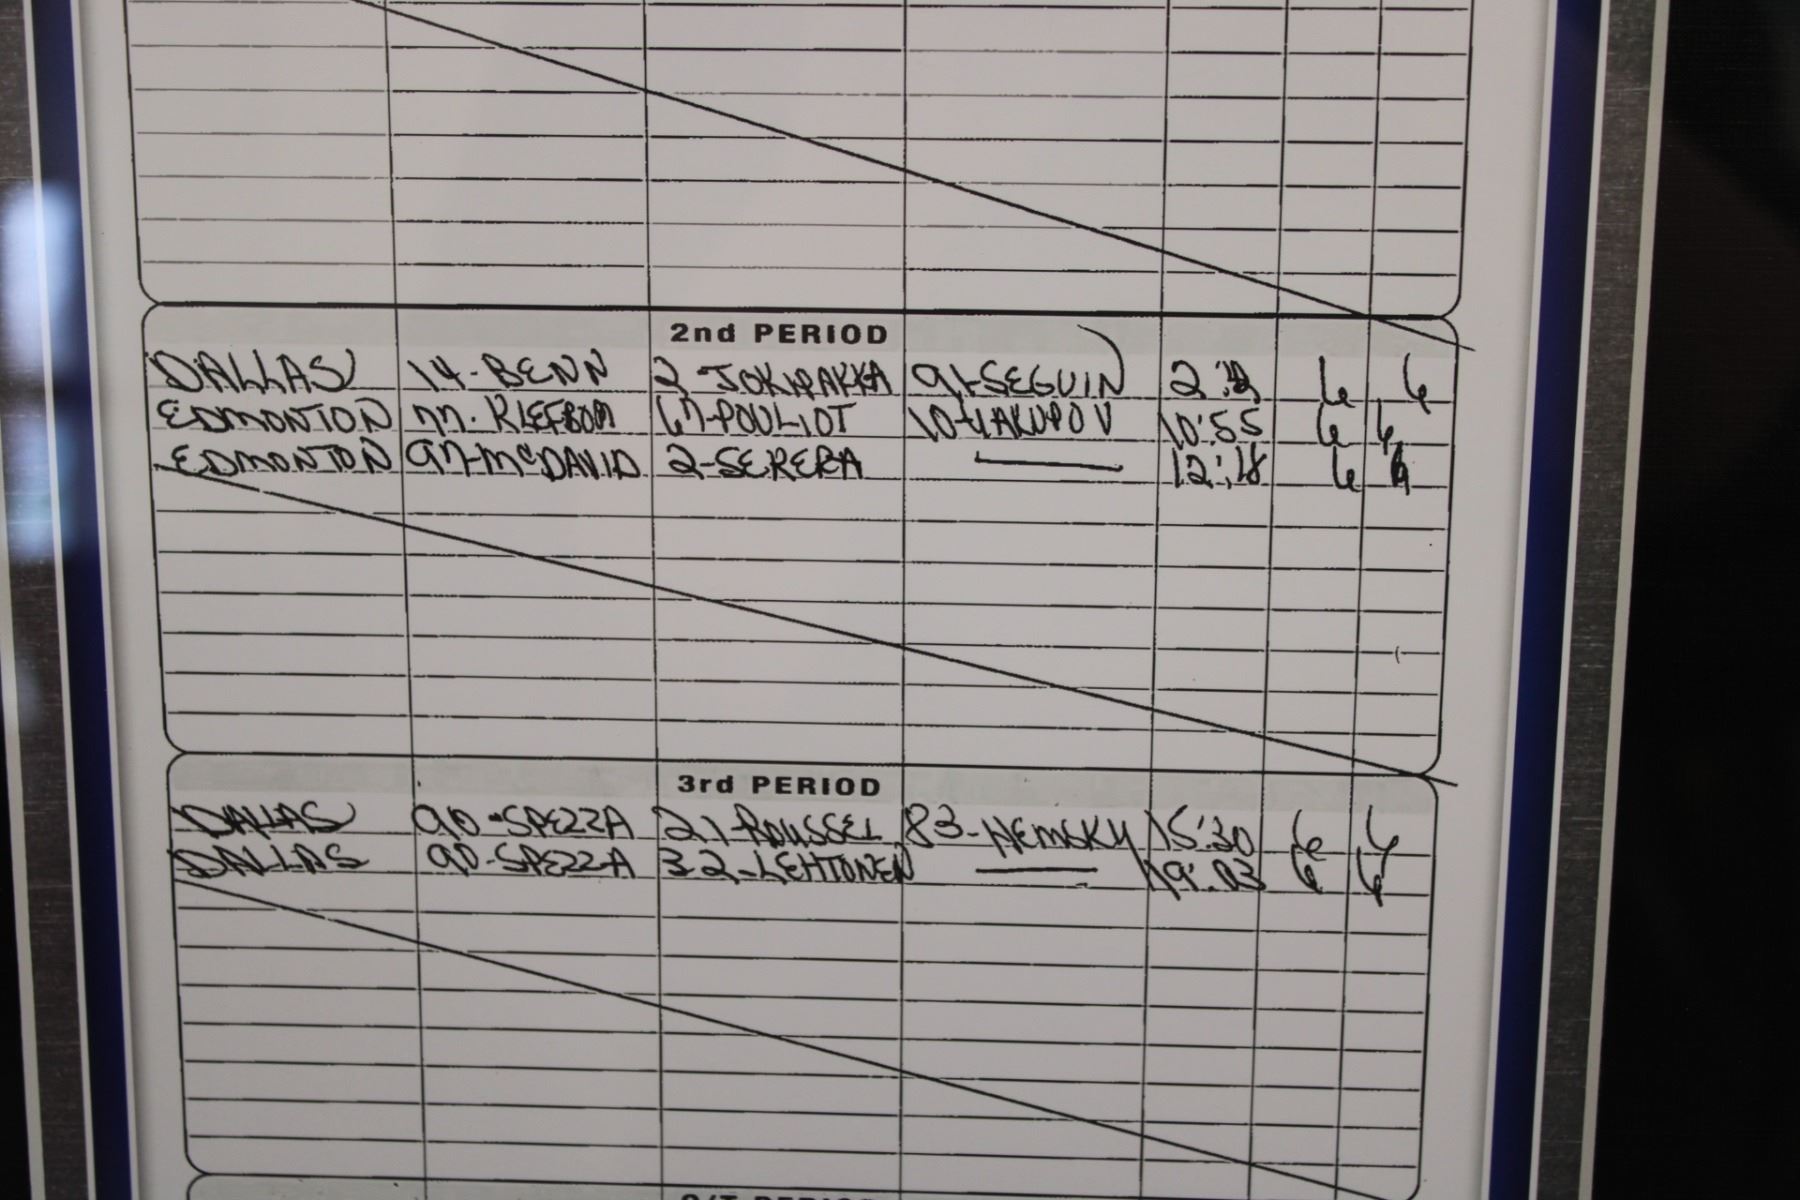 2nd PERIOD
DALLAS 14-BENN 2-JOKIPAKKA 91-SEGUIN 6 6
EDMONTON 77-KLEFBOM 67-POULIOT 10-YAKUPOV 10:55 6 6
EDMONTON 97-McDAVID 2-SEKERA — 12:18 6
3rd PERIOD
DALLAS 90-SPEZZA 21-ROUSSEL 83-HEMSKY 15:30 6 6
DALLAS 90-SPEZZA 32-LEHTONEN — 19:03 6 6
O/T PERIOD